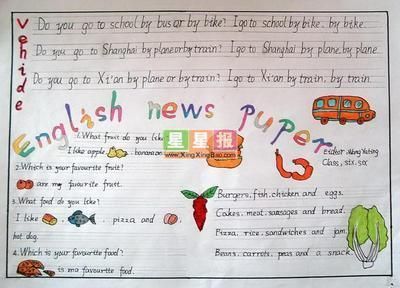 Vehide
Do you go to school by bus or by bike? I go to school by bike. by bike.
Do you go to Shanghai by plane or by train? I go to Shanghai by plane. by plane
Do you go to Xi'an by plane or by train? I go to Xi'an by train. by train.
English news puper
1. What fruit do you like
I like apple, bananan
星星报
www.XingXingBao.com
Class, six. six
2. Which is your favourite fruit?
are my favourite fruit.
3. What food do you like?
I like , pizza and ,
hot dog.
4. Which is your favourite food?
is ma favourite food.
Burgers. fish. chicken and eggs.
Cakes. meat. sausages and bread.
Pizza. rice. sandwiches and jam.
Beans. carrots. peas and a snack.